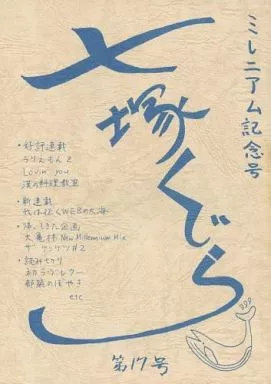 ミレニアム記念号
七塚くじら
・好評連載
うりえもん2
Lovin' you
漢の料理教室
・新連載
我は征くWEBの大海
・帰ってきた企画
大亀様 New Millennium Mix
ザ・ケンケツ#2
・読みキリ
初ラブレター
部族のぼやき
etc
第17号